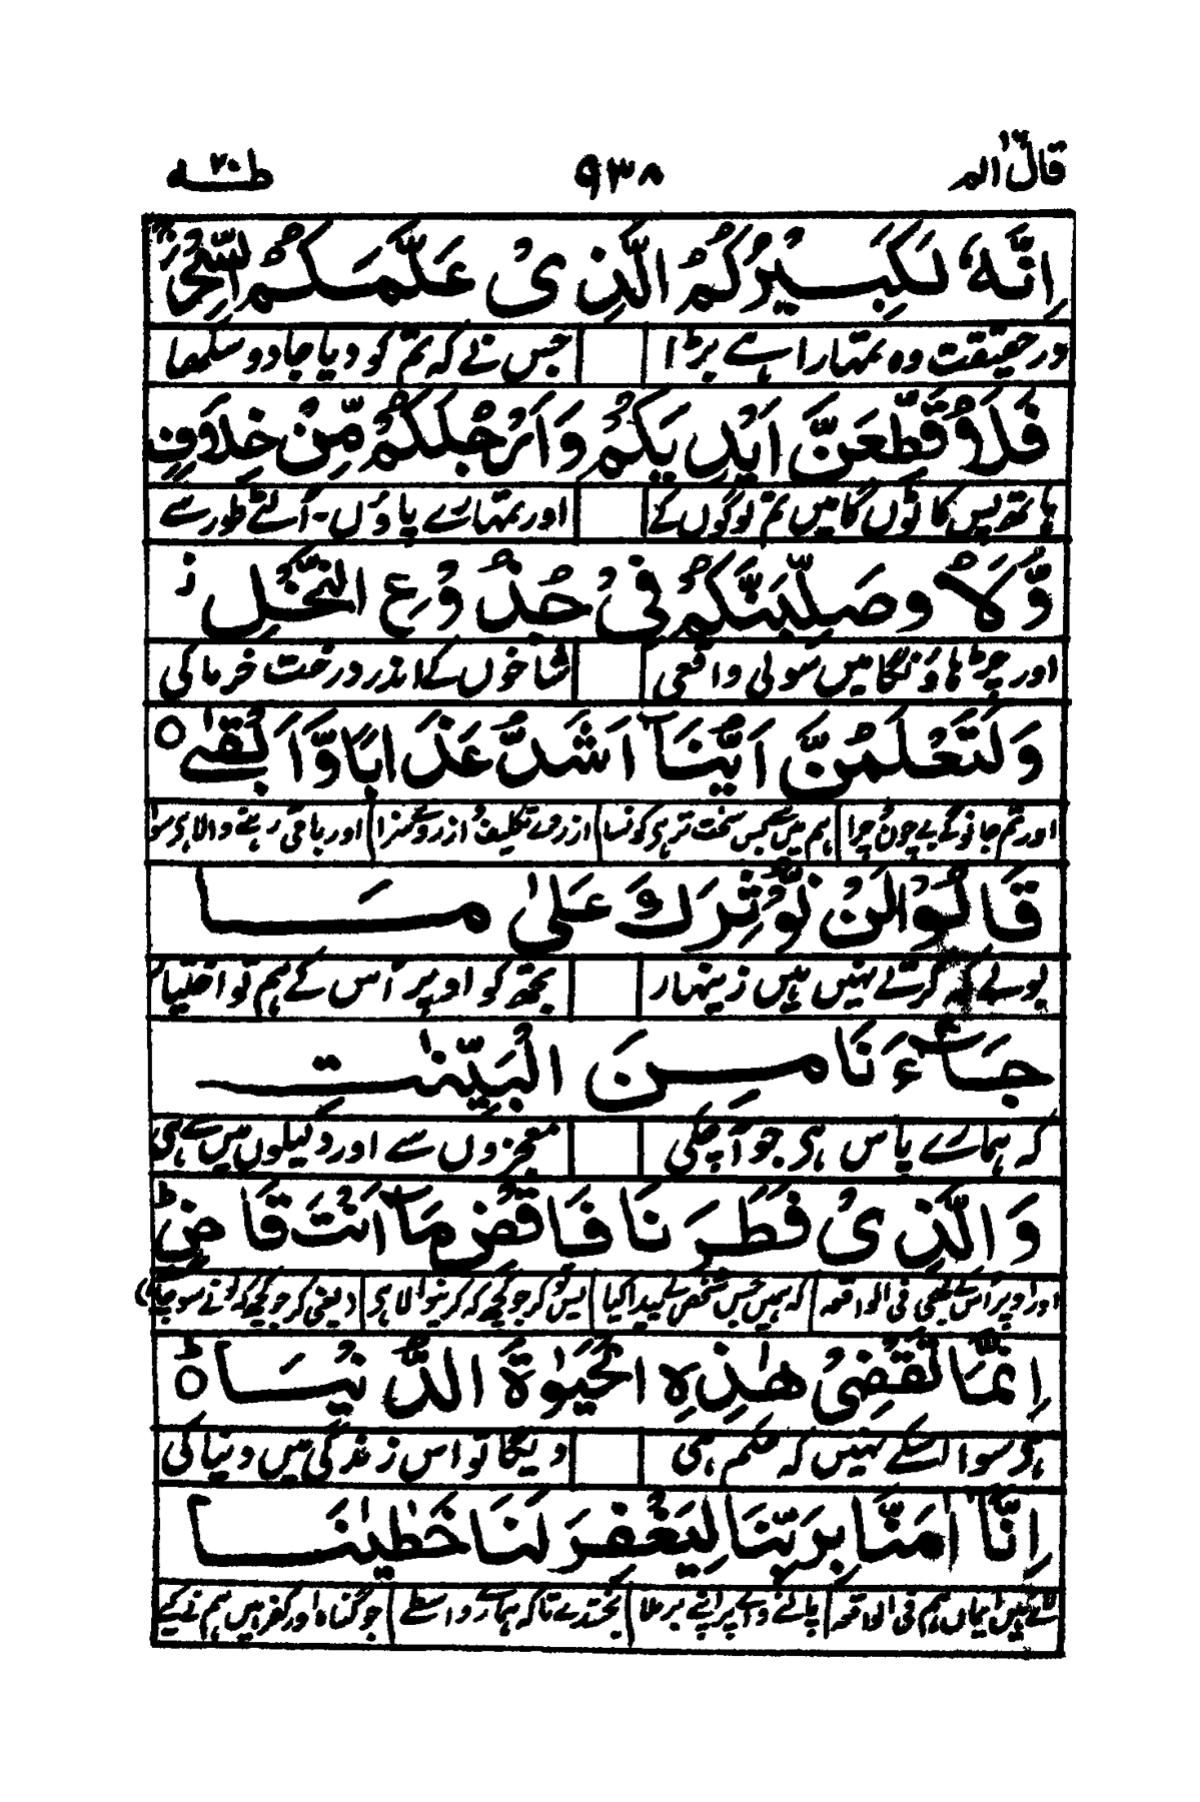 قال الم ١٦ ٩٣٨ طٰهٰ ٢٠
اِنَّهٗ لَكَبِيْرُكُمُ الَّذِىْ عَلَّمَكُمُ السِّحْرَ
در حقیقت وہ تمہارا ہے بڑا جس نے کہ تم کو دیا جادو سکھا
فَلَاُقَطِّعَنَّ اَيْدِيَكُمْ وَاَرْجُلَكُمْ مِّنْ خِلَافٍ
ہاتھ پس کاٹوں گا میں تم لوگوں کے اور تمہارے پاؤں - اُلٹے طور سے
وَّلَاُوصَلِّبَنَّكُمْ فِىْ جُذُوْعِ النَّخْلِ ز
اور چڑھاؤنگا میں سولی واقعی شاخوں کے اندر درخت خرما کی
وَلَتَعْلَمُنَّ اَيُّنَآ اَشَدُّ عَذَابًا وَّاَبْقٰى ○
اور تم جانو گے بے چون و چرا ہم میں سے کس سخت تر ہی کونسا ازروے تکلیف ازروے سزا اور باقی رہنے والا ہی سوا
قَالُوْا لَنْ نُّؤْثِرَكَ عَلٰى مَا
بولے کہ کرتے نہیں ہیں زینہار تجھ کو اوپر اُس کے ہم تو اختیار
جَآءَنَا مِنَ الْبَيِّنٰتِ
کہ ہمارے پاس ہی جو آ چکی معجزوں سے اور دلیلوں میں سے ہی
وَالَّذِىْ فَطَرَنَا فَاقْضِ مَآ اَنْتَ قَاضٍ ط
اور اوپر اُس کے بھی فی الواقعہ کہ ہمیں جس شخص نے پیدا کیا پس تو کر جو کچھ کہ کرنیوالا ہی (یعنی کر جو کچھ کہ تو نے سوچا)
اِنَّمَا تَقْضِىْ هٰذِهِ الْحَيٰوةَ الدُّنْيَا ○ ط
ہی سوا اسکے نہیں کہ حکم ہی دیگا تو اس زندگی میں دنیا کی
اِنَّآ اٰمَنَّا بِرَبِّنَا لِيَغْفِرَ لَنَا خَطٰيٰنَا
لائے ہیں ایماں ہم فی الواقعہ پالنے والے پر اپنے برملا بخشدے تاکہ ہمارے واسطے جو گناہ اور کفر ہیں ہم نے کیے